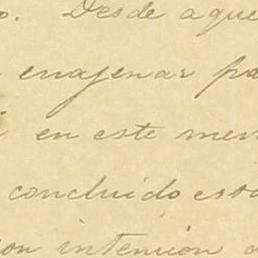 o. Desde aque
enajenar pa
en este men
concluido esta
con intencion